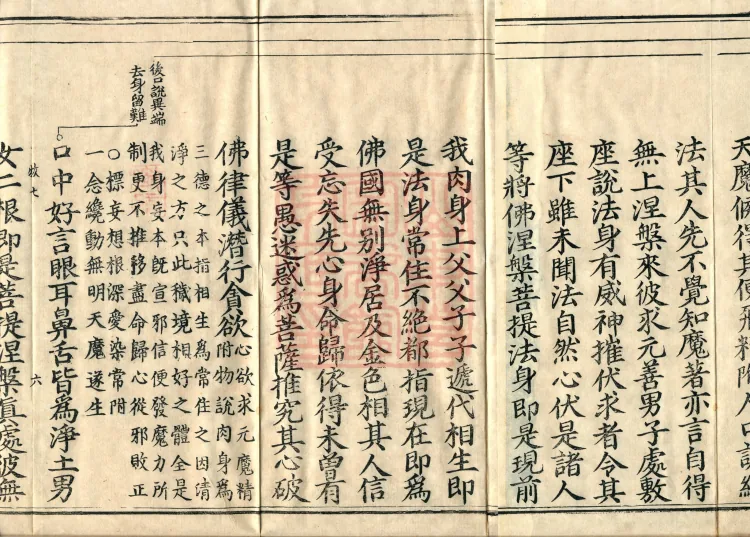 天魔候得其便飛精附人口說經
法其人先不覺知魔著亦言自得
無上涅槃來彼求元善男子處敷
座說法身有威神摧伏求者令其
座下雖未聞法自然心伏是諸人
等將佛涅槃菩提法身即是現前
我肉身上父父子子遞代相生即
是法身常住不絕都指現在即為
佛國無別淨居及金色相其人信
受忘失先心身命歸依得未曾有
是等愚迷惑為菩薩推究其心破
佛律儀潛行貪欲
心欲求元魔精
附物說肉身為
三德之本指相生為常住之因清
淨之方只此穢境相好之體全是
我身妄本既宣邪信便發魔力所
制更不推移盡命歸心從邪敗正
○標妄想根深愛染常附
一念纔動無明天魔遂生
後口說異端
去身留難
口中好言眼耳鼻舌皆為淨土男
六
女二根即是菩提涅槃真處彼無